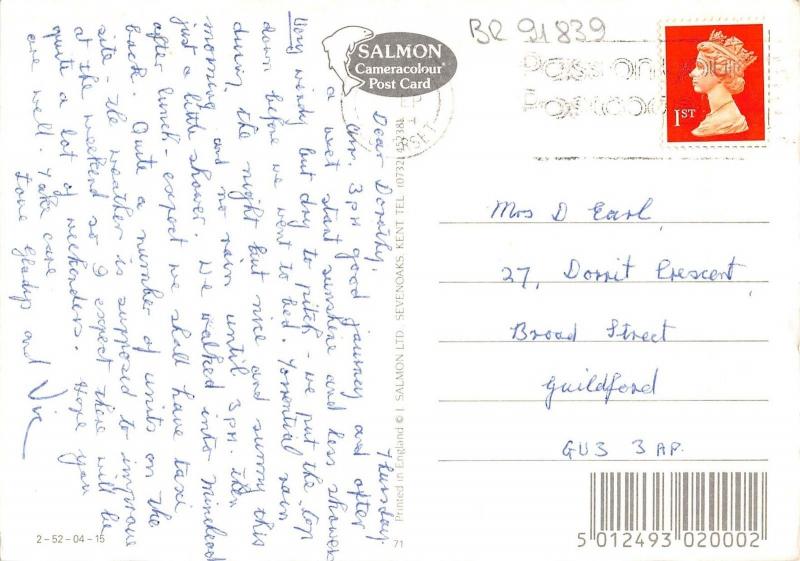 BR 91839
SALMON
Cameracolour®
Post Card
1ST
Pass on
Thursday.
Dear Dorothy,
arr. 3 PM good journey and after
a wet start sunshine and less showers
Very windy but dry to pitch - we put the top
down before we went to bed. Torrential rain
during the night but nice and sunny this
morning and no rain until 3 PM. Then
just a little shower. We walked into Minehead
after lunch - expect we shall have taxi
back. Quite a number of units on the
site - the weather is supposed to improve
at the weekend so I expect there will be
quite a lot of weekenders. Hope you
are well. Take care
Love Gladys and Vic
Printed in England © J. SALMON LTD. SEVENOAKS. KENT TEL. (0732) 452381
Mrs D Earl,
27, Dorrit Crescent,
Broad Street
Guildford
GU3 3AP.
2-52-04-15
71
5 012493 020002